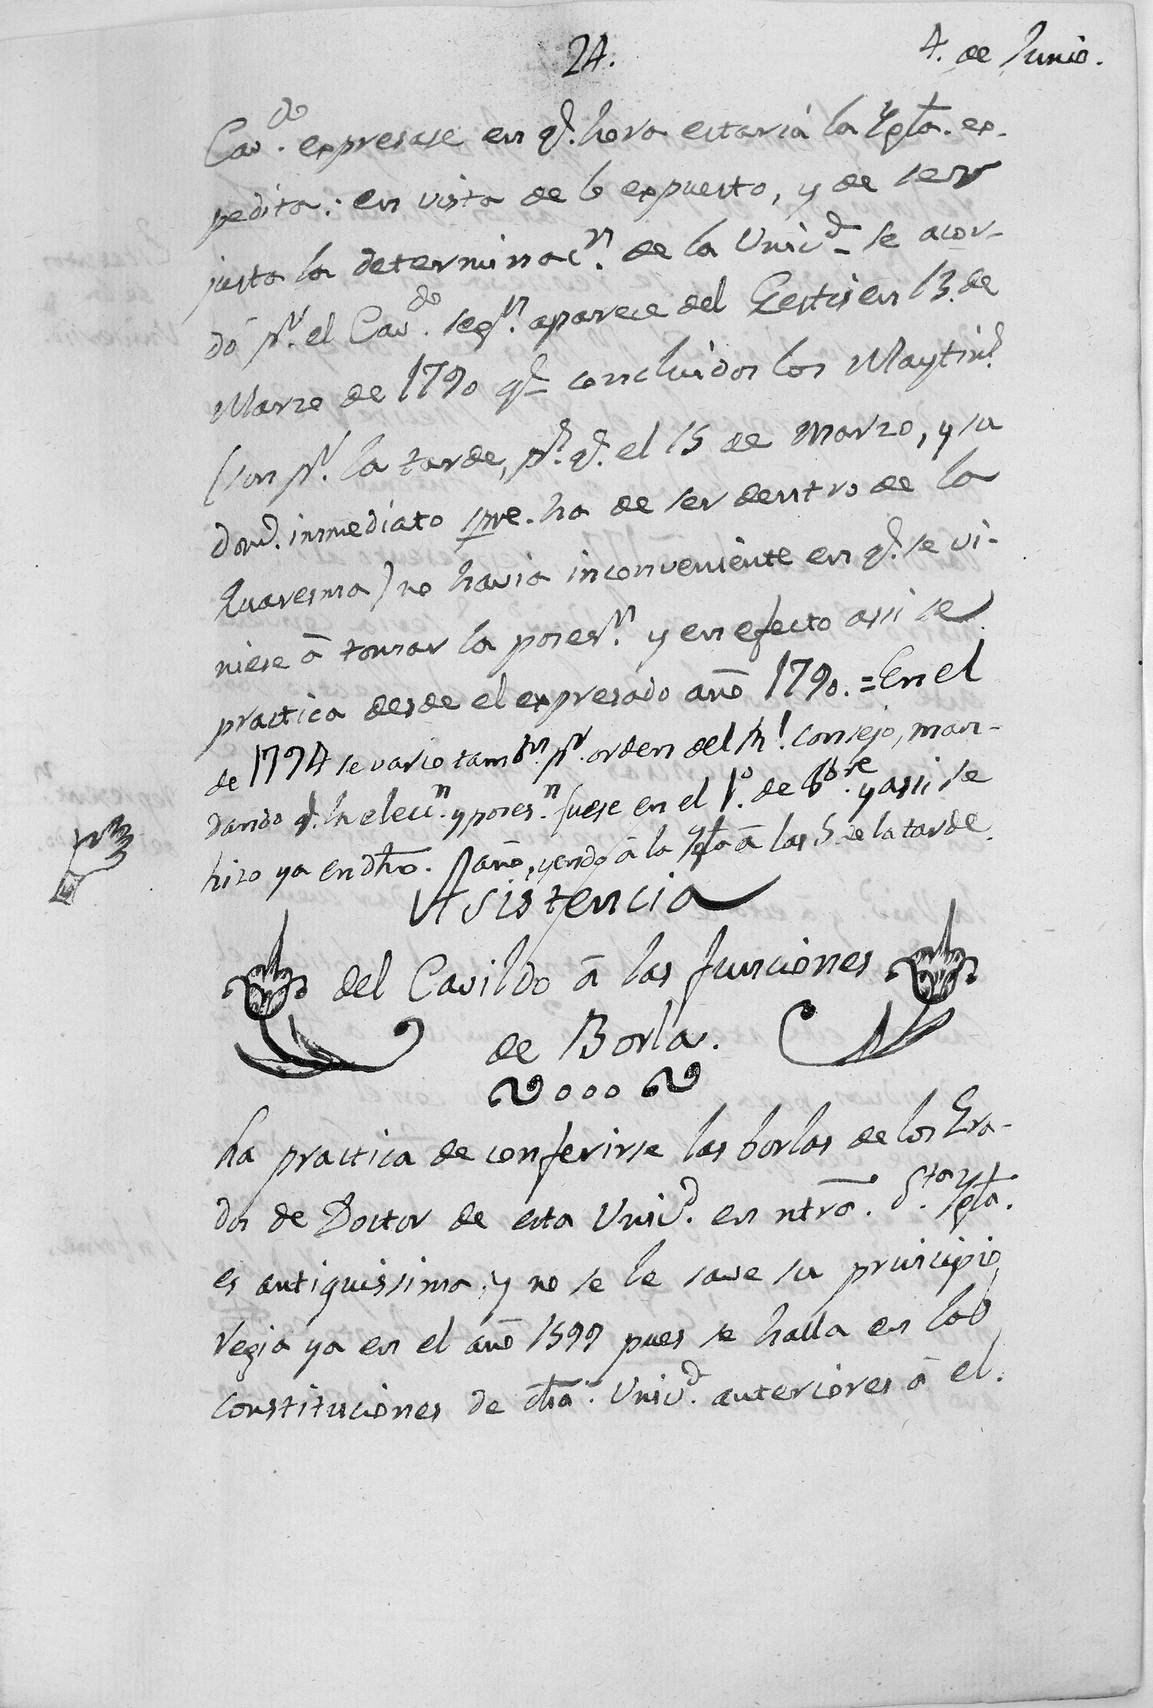 24.
4. de Junio.
Cav.do expresase en q.e hora estaria la Ygla. ex-
pedita: en vista de lo expuesto, y de ser
justa la determinac.n de la Univ.d se acor-
dó p.r el Cav.do seg.n aparece del Gestis en 13. de
Marzo de 1790 q.e concluidos los Maytin.s
(son p.r la tarde, p.r q.e el 15 de Marzo, y su
dom.o inmediato spre. ha de ser dentro de la
Quaresma) no havia inconveniente en q.e se vi-
niese â tomar la poses.n y en efecto assi se
practica desde el expresado año 1790. = En el
de 1794 se vario tamb.n p.r orden del Rl. Consejo, man-
dando q.e la elecc.n y poses.n fuese en el 1.o de 8bre. y assi se
hizo ya en dho. año, yendo â la Ygla â las 5. de la tarde.
Asistencia
del Cavildo â las funciones
de Borla.
La practica de conferirse las borlas de los Gra-
dos de Doctor de esta Univ.d en ntra. S.ta Ygla.
es antiquissima, y no se le save su principio,
regia ya en el año 1599 pues se halla en las
Constituciones de dha. Univ.d anteriores â el.